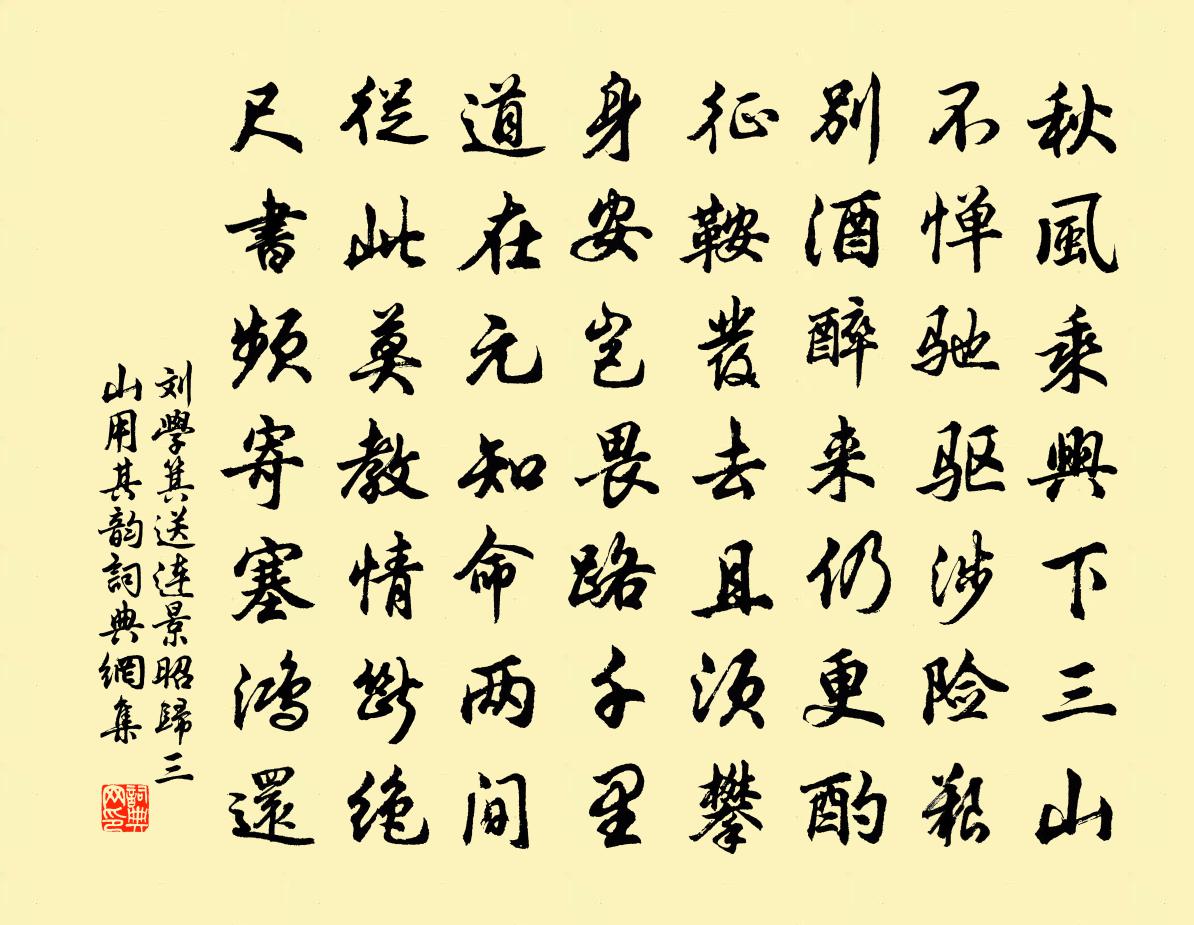 秋風乘興下三山
不惮驰驱涉险艱
別酒醉来仍更酌
征鞍發去且須攀
身安岂畏路千里
道在元知命两间
從此莫教情断绝
尺書頻寄塞鸿還
刘學箕送连景昭歸三
山用其韵詞典網集
詞典网印